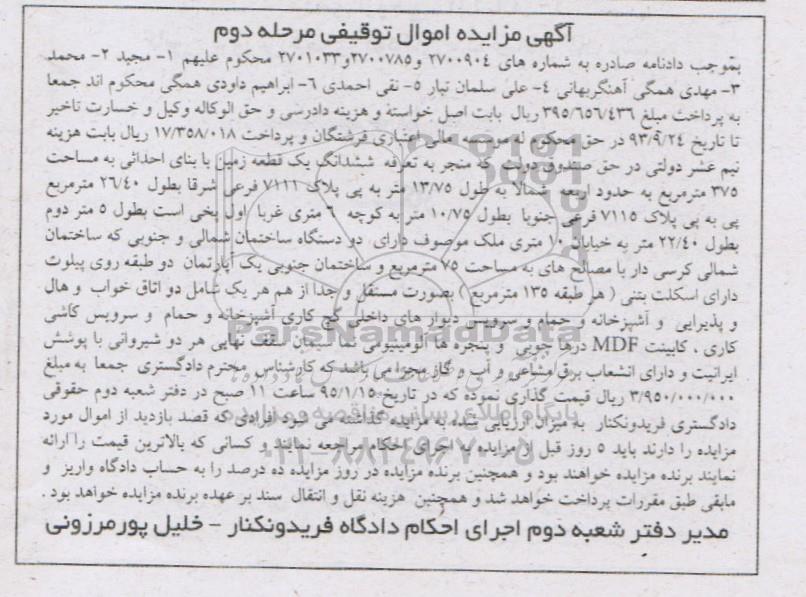 آگهی مزایده اموال توقیفی مرحله دوم
بموجب دادنامه صادره به شماره های ۲۷۰۰۹۰۴ و۲۷۰۰۷۸۵و۲۷۰۱۰۳۳ محکوم علیهم ۱- مجید ۲- محمد
۳- مهدی همگی آهنگربهانی ۴- علی سلمان تبار ۵- نقی احمدی ۶- ابراهیم داودی همگی محکوم اند جمعا
به پرداخت مبلغ ۳۹۵/۶۵۶/۴۳۶ ریال بابت اصل خواسته و هزینه دادرسی و حق الوکاله وکیل و خسارت تاخیر
تا تاریخ ۹۳/۹/۲۴ در حق محکوم له موسسه مالی اعتباری فرشتگان و پرداخت ۱۷/۳۵۸/۰۱۸ ریال بابت هزینه
نیم عشر دولتی در حق صندوق دولت که منجر به تعرفه ششدانگ یک قطعه زمین با بنای احداثی به مساحت
۳۷۵ مترمربع به حدود اربعه شمالا به طول ۱۳/۷۵ متر به پی پلاک ۷۱۱۱ فرعی شرقا بطول ۲۶/۴۰ مترمربع
پی به پی پلاک ۷۱۱۵ فرعی جنوبا بطول ۱۰/۷۵ متر به کوچه ۶ متری غربا اول پخی است بطول ۵ متر دوم
بطول ۲۲/۴۰ متر به خیابان ۱۰ متری ملک موصوف دارای دو دستگاه ساختمان شمالی و جنوبی که ساختمان
شمالی کرسی دار با مصالح های به مساحت ۷۵ مترمربع و ساختمان جنوبی یک آپارتمان دو طبقه روی پیلوت
دارای اسکلت بتنی ( هر طبقه ۱۳۵ مترمربع ) بصورت مستقل و جدا از هم هر یک شامل دو اتاق خواب و هال
و پذیرایی و آشپزخانه و حمام و سرویس دیوار های داخلی گچ کاری آشپزخانه و حمام و سرویس کاشی
کاری ، کابینت MDF درها چوبی و پنجره ها آلومینیومی نما سیمان سقف نهایی هر دو شیروانی با پوشش
ایرانیت و دارای انشعاب برق مشاعی و آب و گاز مجزا می باشد که کارشناس محترم دادگستری جمعا به مبلغ
۳/۹۵۰/۰۰۰/۰۰۰ ریال قیمت گذاری نموده که در تاریخ ۹۵/۱/۱۵ ساعت ۱۱ صبح در دفتر شعبه دوم حقوقی
دادگستری فریدونکنار به میزان ارزیابی شده به مزایده گذاشته می شود افرادی که قصد بازدید از اموال مورد
مزایده را دارند باید ۵ روز قبل از مزایده به اجرای احکام مراجعه نمایند و کسانی که بالاترین قیمت را ارائه
نمایند برنده مزایده خواهند بود و همچنین برنده مزایده در روز مزایده ده درصد را به حساب دادگاه واریز و
مابقی طبق مقررات پرداخت خواهد شد و همچنین هزینه نقل و انتقال سند بر عهده برنده مزایده خواهد بود .
مدیر دفتر شعبه دوم اجرای احکام دادگاه فریدونکنار - خلیل پورمرزونی
ParsNamadData
پایگاه اطلاع رسانی مناقصه و مزایده